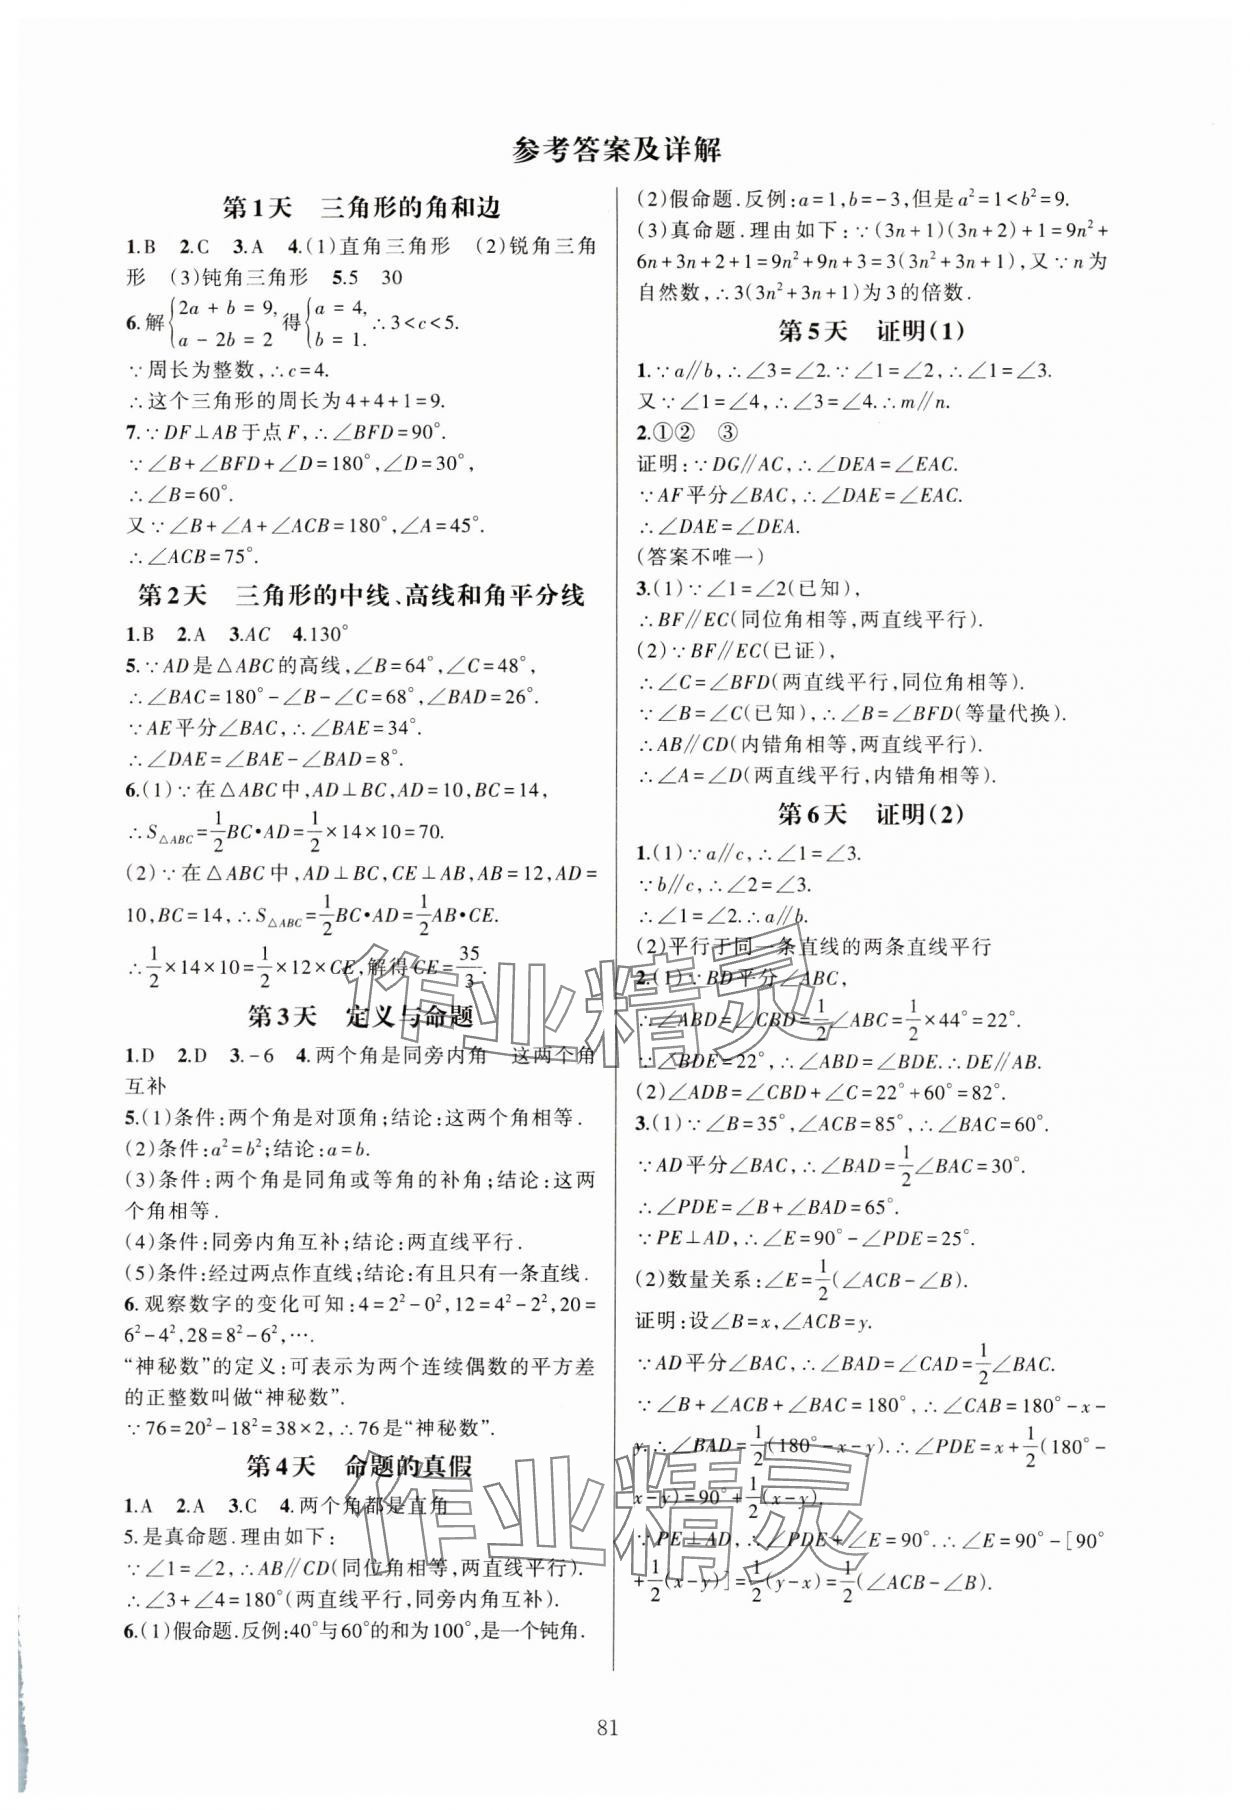 参考答案及详解
第1天 三角形的角和边
1.B 2.C 3.A 4.(1)直角三角形 (2)锐角三角
形 (3)钝角三角形 5.5 30
6.解{2a+b=9, a-2b=2 得{a=4, b=1. ∴3<c<5.
∵周长为整数,∴c=4.
∴这个三角形的周长为4+4+1=9.
7.∵DF⊥AB于点F,∴∠BFD=90°.
∵∠B+∠BFD+∠D=180°,∠D=30°,
∴∠B=60°.
又∵∠B+∠A+∠ACB=180°,∠A=45°.
∴∠ACB=75°.
第2天 三角形的中线、高线和角平分线
1.B 2.A 3.AC 4.130°
5.∵AD是△ABC的高线,∠B=64°,∠C=48°,
∴∠BAC=180°-∠B-∠C=68°,∠BAD=26°.
∵AE平分∠BAC,∴∠BAE=34°.
∴∠DAE=∠BAE-∠BAD=8°.
6.(1)∵在△ABC中,AD⊥BC,AD=10,BC=14,
∴S△ABC=1/2BC·AD=1/2×14×10=70.
(2)∵在△ABC中,AD⊥BC,CE⊥AB,AB=12,AD=
10,BC=14,∴S△ABC=1/2BC·AD=1/2AB·CE.
∴1/2×14×10=1/2×12×CE,解得CE=35/3.
第3天 定义与命题
1.D 2.D 3.-6 4.两个角是同旁内角 这两个角
互补
5.(1)条件:两个角是对顶角;结论:这两个角相等.
(2)条件:a²=b²;结论:a=b.
(3)条件:两个角是同角或等角的补角;结论:这两
个角相等.
(4)条件:同旁内角互补;结论:两直线平行.
(5)条件:经过两点作直线;结论:有且只有一条直线.
6.观察数字的变化可知:4=2²-0²,12=4²-2²,20=
6²-4²,28=8²-6²,….
“神秘数”的定义:可表示为两个连续偶数的平方差
的正整数叫做“神秘数”.
∵76=20²-18²=38×2,∴76是“神秘数”.
第4天 命题的真假
1.A 2.A 3.C 4.两个角都是直角
5.是真命题.理由如下:
∵∠1=∠2,∴AB∥CD(同位角相等,两直线平行).
∴∠3+∠4=180°(两直线平行,同旁内角互补).
6.(1)假命题.反例:40°与60°的和为100°,是一个钝角.
(2)假命题.反例:a=1,b=-3,但是a²=1<b²=9.
(3)真命题.理由如下:∵(3n+1)(3n+2)+1=9n²+
6n+3n+2+1=9n²+9n+3=3(3n²+3n+1),又∵n为
自然数,∴3(3n²+3n+1)为3的倍数.
第5天 证明(1)
1.∵a∥b,∴∠3=∠2.∵∠1=∠2,∴∠1=∠3.
又∵∠1=∠4,∴∠3=∠4.∴m∥n.
2.①② ③
证明:∵DG∥AC,∴∠DEA=∠EAC.
∵AF平分∠BAC,∴∠DAE=∠EAC.
∴∠DAE=∠DEA.
(答案不唯一)
3.(1)∵∠1=∠2(已知),
∴BF∥EC(同位角相等,两直线平行).
(2)∵BF∥EC(已证),
∴∠C=∠BFD(两直线平行,同位角相等).
∵∠B=∠C(已知),∴∠B=∠BFD(等量代换).
∴AB∥CD(内错角相等,两直线平行).
∴∠A=∠D(两直线平行,内错角相等).
第6天 证明(2)
1.(1)∵a∥c,∴∠1=∠3.
∵b∥c,∴∠2=∠3.
∴∠1=∠2.∴a∥b.
(2)平行于同一条直线的两条直线平行
2.(1)∵BD平分∠ABC,
∴∠ABD=∠CBD=1/2∠ABC=1/2×44°=22°.
∵∠BDE=22°,∴∠ABD=∠BDE.∴DE∥AB.
(2)∠ADB=∠CBD+∠C=22°+60°=82°.
3.(1)∵∠B=35°,∠ACB=85°,∴∠BAC=60°.
∵AD平分∠BAC,∴∠BAD=1/2∠BAC=30°.
∴∠PDE=∠B+∠BAD=65°.
∵PE⊥AD,∴∠E=90°-∠PDE=25°.
(2)数量关系:∠E=1/2(∠ACB-∠B).
证明:设∠B=x,∠ACB=y.
∵AD平分∠BAC,∴∠BAD=∠CAD=1/2∠BAC.
∵∠B+∠ACB+∠BAC=180°,∴∠CAB=180°-x-
y.∴∠BAD=1/2(180°-x-y).∴∠PDE=x+1/2(180°-
x-y)=90°+1/2(x-y).
∵PE⊥AD,∴∠PDE+∠E=90°.∴∠E=90°-[90°
+1/2(x-y)]=1/2(y-x)=1/2(∠ACB-∠B).
作业精灵
作业精灵
81